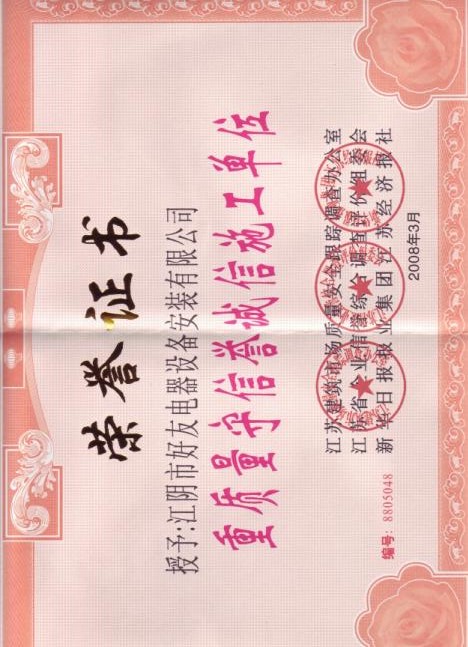 荣誉证书
授予:江阴市好友电器设备安装有限公司
重质量守信誉诚信施工单位
江苏建筑市场质量安全跟踪调查办公室
江苏省企业信誉综合调查评价组委会
新华日报报业集团江苏经济报社
编号: 8805048
2008年3月